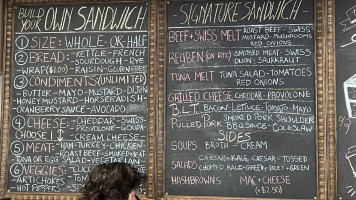 BUILD YOUR OWN SANDWICH
① SIZE: WHOLE OR HALF
② BREAD: -KETTLE-FRENCH
-SOURDOUGH-RYE
-WRAP($1.00) -RAISIN-GUERNSEY
③ CONDIMENTS(UNLIMITED)
BUTTER-MAYO-MUSTARD-DIJON
HONEY MUSTARD-HORSERADISH
CRANBERRY SAUCE-AVOCADO
④ CHEESE: -CHEDDAR-SWISS
CHOOSE 1 -PROVOLONE-GOUDA
-CREAM CHEESE
⑤ MEAT: -HAM-TURKEY-CHICKEN
-ROAST BEEF-SMOKED MEAT
TUNA OR EGG SALAD-VEGETARIAN
⑥ VEGGIES: -LETTUCE-TOMATO
-ARTICHOKES
-HOT PEPPERS
SIGNATURE SANDWICH
BEEF+SWISS MELT ROAST BEEF-SWISS
MUSTARD-MUSHROOMS
RED ONIONS
REUBEN (ON RYE) SMOKED MEAT-SWISS
DIJON-SAURKRAUT
TUNA MELT TUNA SALAD-TOMATOES
RED ONION
GRILLED CHEESE CHEDDAR-PROVOLONE
B.L.T BACON-LETTUCE-TOMATO-MAYO
PULLED PORK SMOKED PORK SHOULDER
BBQ SAUCE-COLESLAW
SIDES
SOUPS BROTH-CREAM
CAESAR-KALE CAESAR-TOSSED
SALADS CHOPPED KALE-GREEK-BEET+GREEN
HASHBROWNS MAC+CHEESE
(+$2.50)